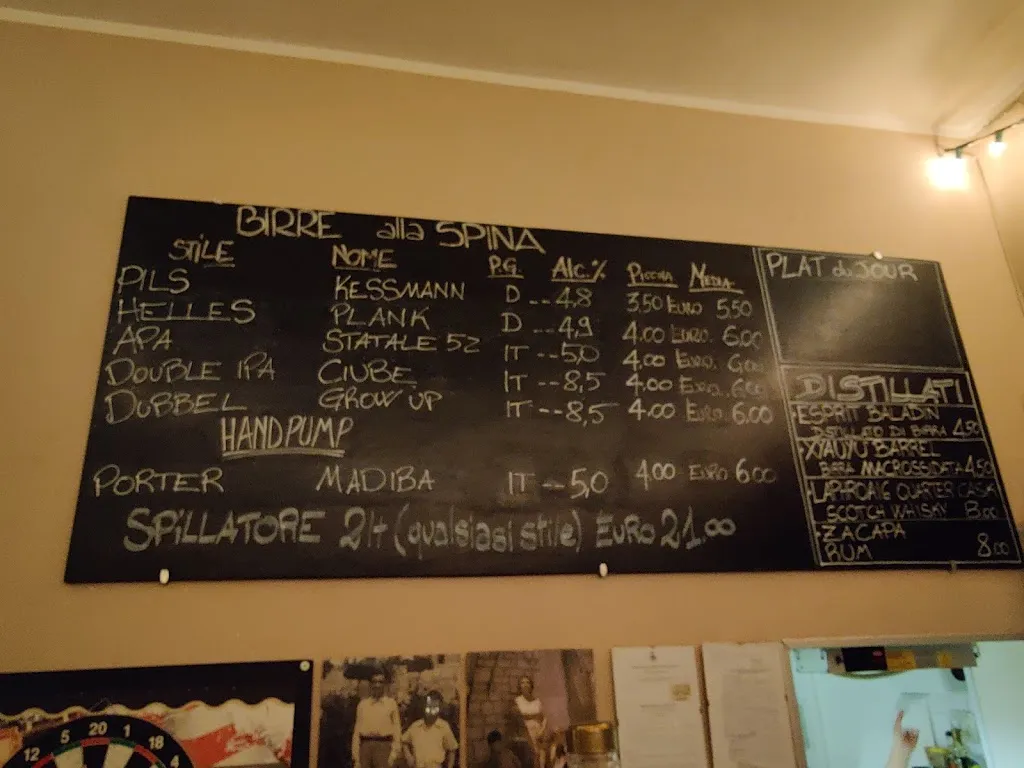 BIRRE alla SPINA
STILE NOME P.G. Alc.% Piccola Media
PILS KESSMANN D -- 4,8 3,50 EURO 5,50
HELLES PLANK D -- 4,9 4.00 EURO. 6.00
APA STATALE 52 IT -- 5,0 4.00 EURO. 6.00
DOUBLE IPA CIUBE IT -- 8,5 4.00 EURO. 6.00
DUBBEL GROW UP IT -- 8,5 4.00 EURO 6.00
HANDPUMP
PORTER MADIBA IT -- 5,0 4.00 EURO 6.00
SPILLATORE 2lt (qualsiasi stile) EURO 21.00
PLAT du JOUR
DISTILLATI
ESPRIT BALADIN
DISTILLATO DI BIRRA 4.50
XYAUYU BARREL
BIRRA MACROSSIDATA 4.50
LAPHROAIG QUARTER CASK
SCOTCH WHISKY 8.00
ZACAPA
RUM 8.00
12 5 20 1 18 4